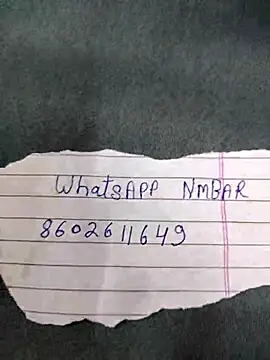 WhatsAPP NMBAR
8602611649